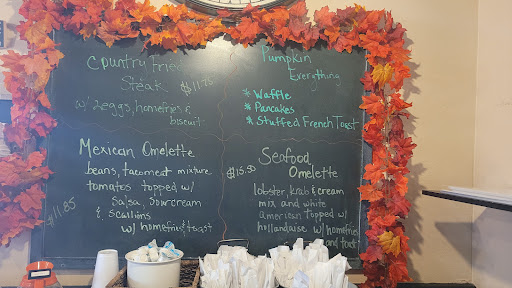 Country Fried
Steak $11.75
w/ 2 eggs, homefries &
biscuit
Pumpkin
Everything
* Waffle
* Pancakes
* Stuffed French Toast
Mexican Omelette
beans, tacomeat mixture
tomatos topped w/
salsa, sourcream
& scallins
w/ homefries & toast
$11.85
Seafood
$15.50 Omelette
lobster, krab & cream
mix and white
american topped w/
hollandaise w/ homefries
and toast